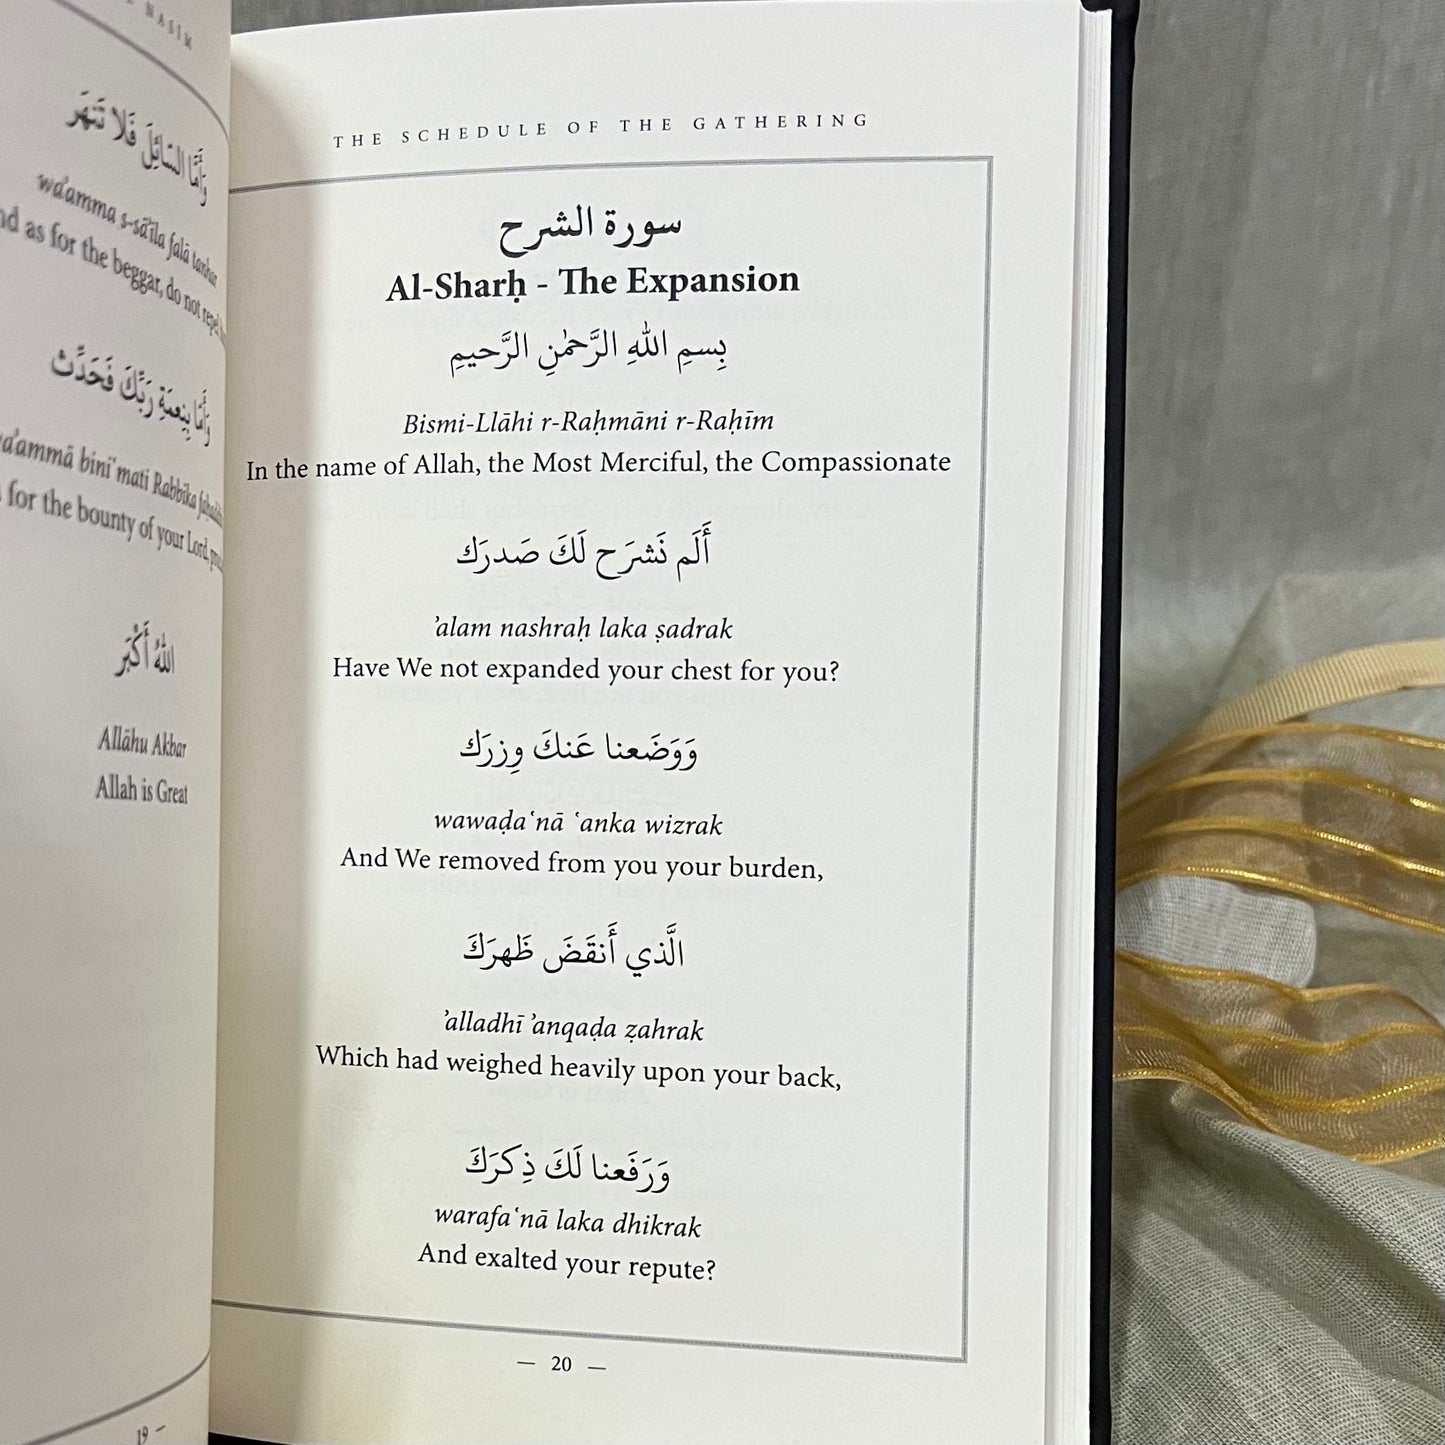 NASIM
وَأَمَّا السَّائِلَ فَلا تَنهَر
wa'amma s-sā'ila falā tanhar
as for the beggar, do not repel
وَأَمّا بِنِعمَةِ رَبِّكَ فَحَدِّث
bini'mati Rabbika
for the bounty of your Lord,
اللهُ أَكْبَر
Allāhu Akbar
Allah is Great
19 —
THE SCHEDULE OF THE GATHERING
سورة الشرح
Al-Sharḥ - The Expansion
بِسمِ اللهِ الرَّحمٰنِ الرَّحيمِ
Bismi-Llāhi r-Raḥmāni r-Raḥīm
In the name of Allah, the Most Merciful, the Compassionate
أَلَم نَشرَح لَكَ صَدرَك
ʾalam nashraḥ laka ṣadrak
Have We not expanded your chest for you?
وَوَضَعنا عَنكَ وِزرَك
wawaḍaʿnā ʿanka wizrak
And We removed from you your burden,
الَّذي أَنقَضَ ظَهرَكَ
ʾalladhī ʾanqaḍa ẓahrak
Which had weighed heavily upon your back,
وَرَفَعنا لَكَ ذِكرَكَ
warafaʿnā laka dhikrak
And exalted your repute?
— 20 —